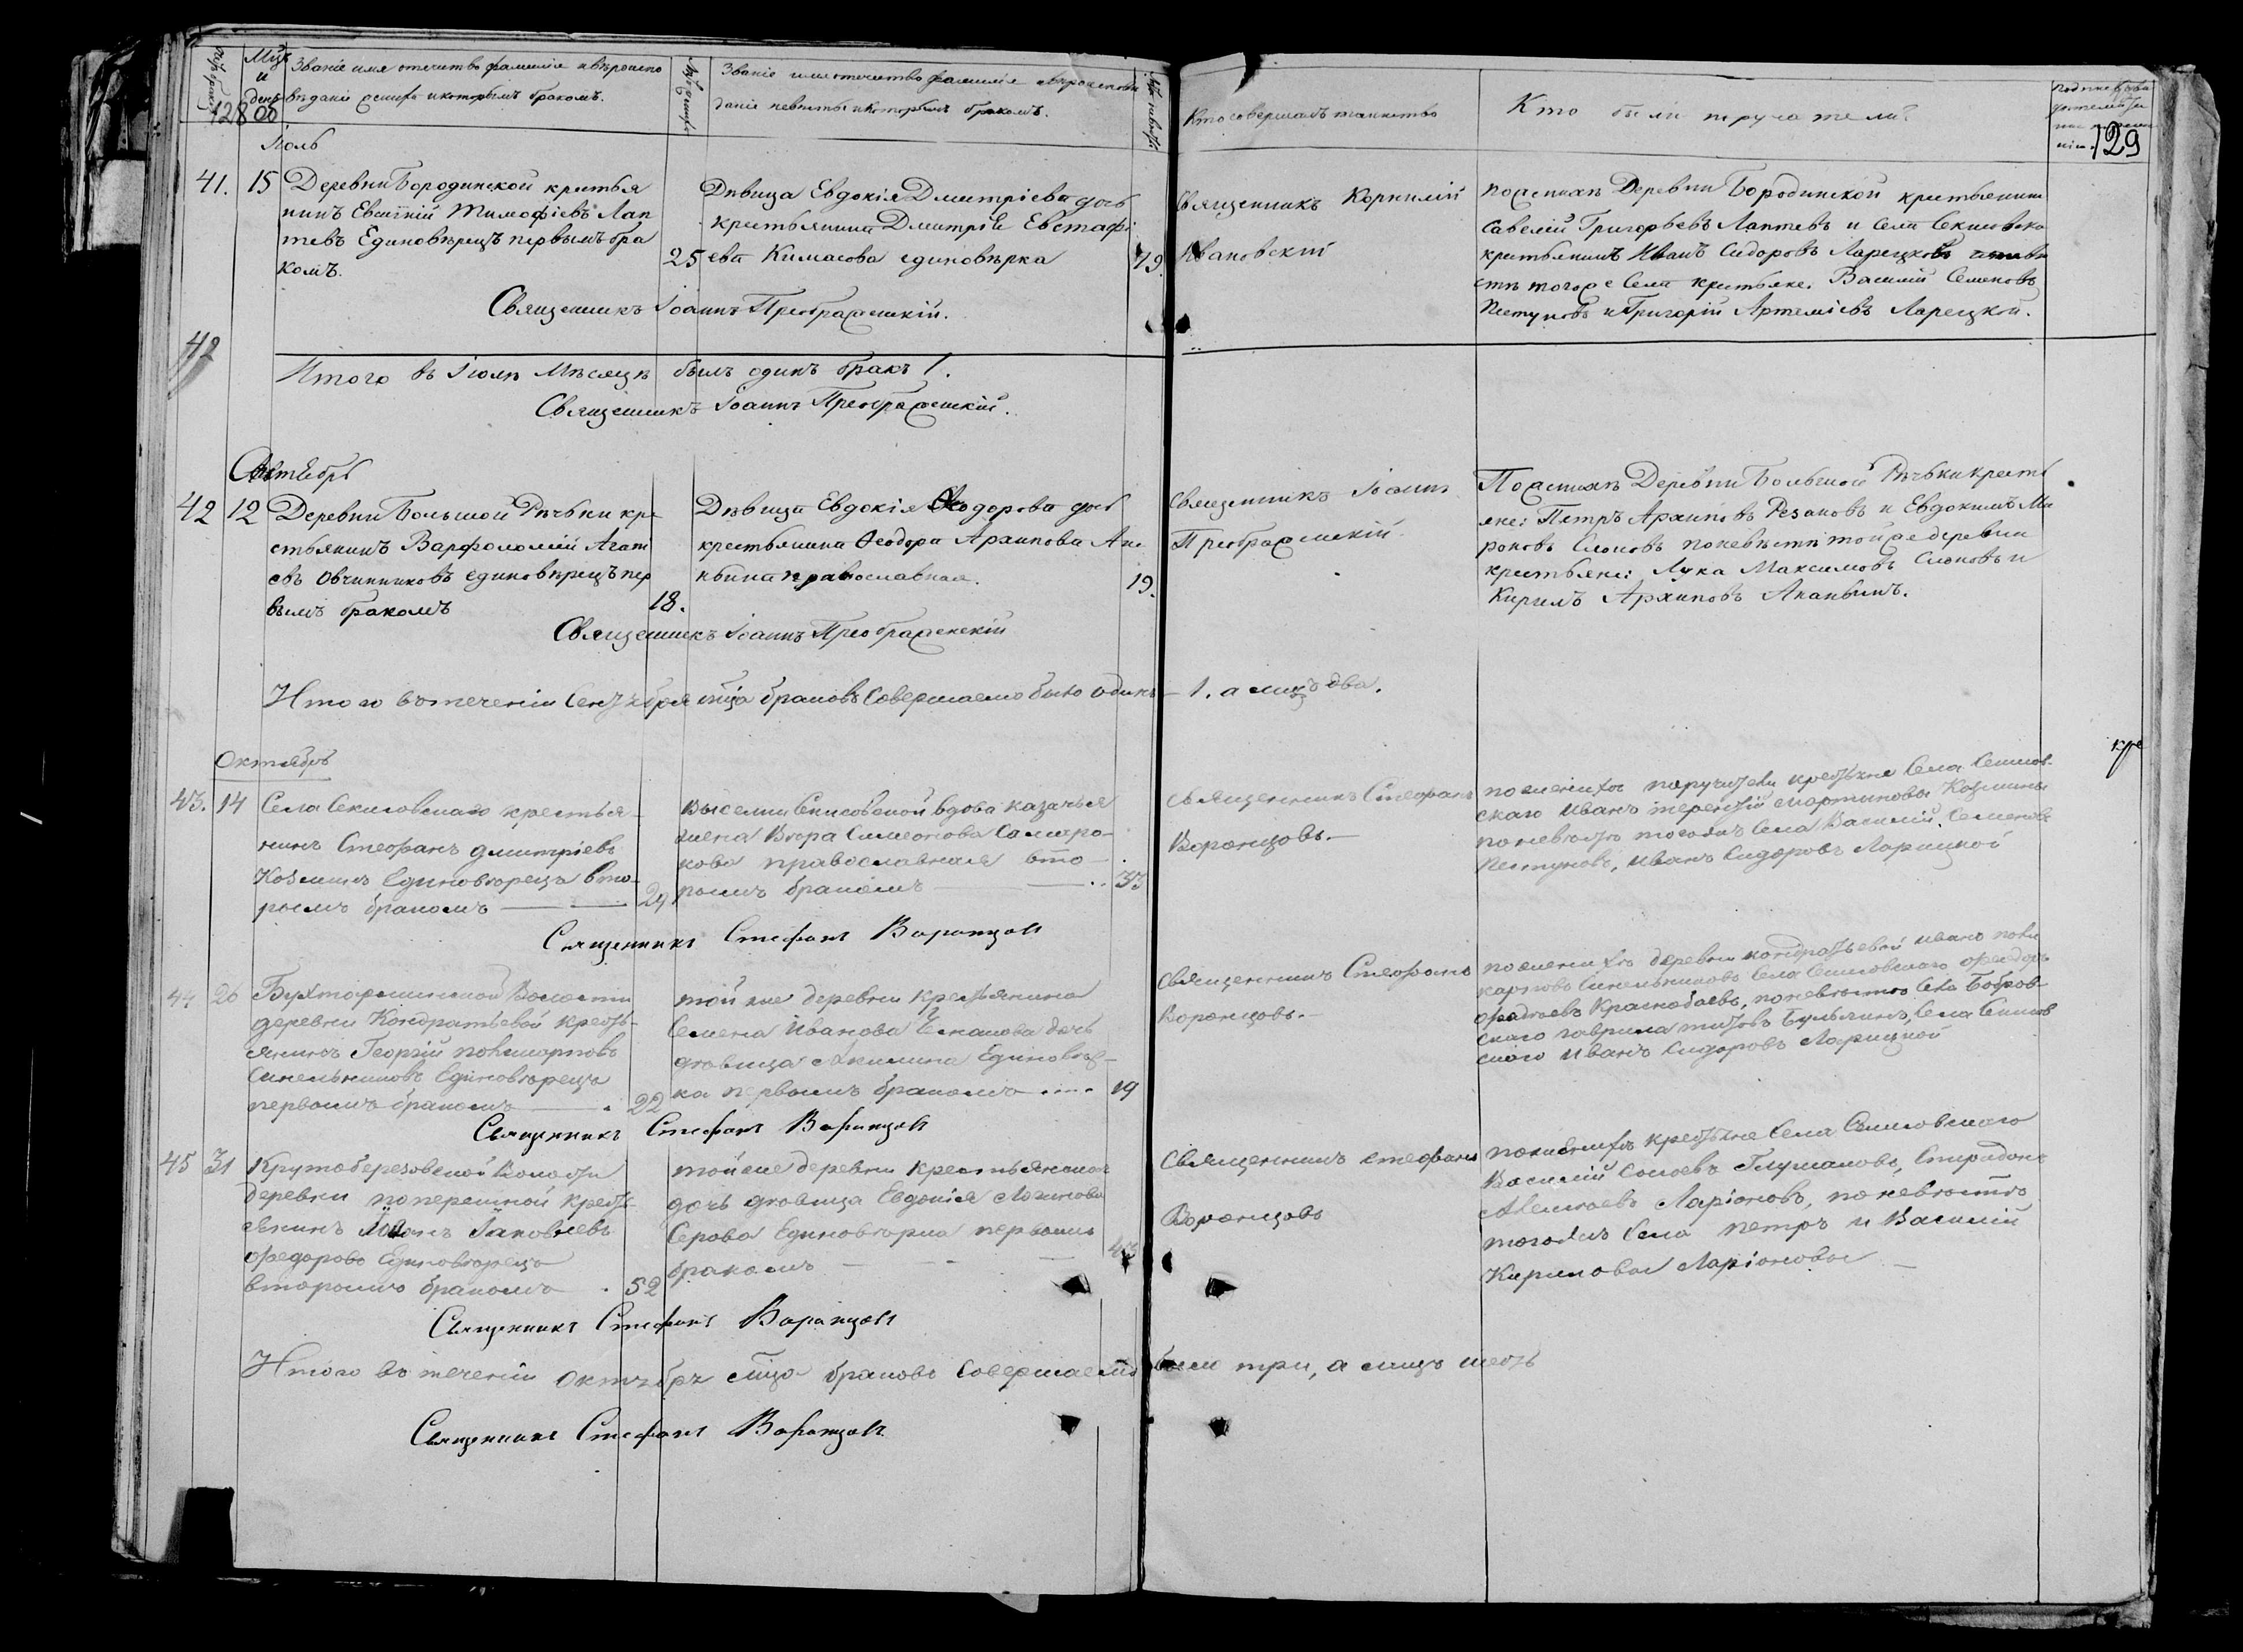 Мцъ и день
Званіе имя отечитво фамилія и вѣроиспо
вѣданіе жениха и которымъ бракомъ.
Званіе имя отечитво фамилія
даніе невѣсты и которымъ бракомъ.
Кто совершалъ таинство
Кто были поручатели
128 об
129
Іюль
41. 15 Деревни Бородинской кретья
нинъ Евгеній Тимофіевъ Лап
тевъ Единовѣрецъ первымъ бра
комъ. 25
Дѣвица Евдокія Дмитріева дочь
крестьянина Дмитріе Евстафі
ева Кимасова единовѣрка 19.
Священникъ Корнилій
Ивановскій
по женихѣ Деревни Бородинской кретьянинъ
Савелій Григорьевъ Лаптевъ и Села Секисовска
кретьянинъ Иванъ Сидоровъ Ларецковъ
стѣ тогоже Села кретьяне. Василій Семеновъ
Пестуновъ и Григорій Артеміевъ Ларецкой.
Священникъ Іоаннъ Преображенскій.
42
Итого въ Іюлѣ Мѣсяцѣ былъ одинъ бракъ 1.
Священникъ Іоаннъ Преображенскій.
42 12 Деревни Большой Рѣчьки кре
стьянинъ Варфоломій Агапі
евъ Овчинниковъ единовѣрецъ пер
вымъ бракомъ 18.
Дѣвица Евдокія Ѳеодорова дочь
крестьянина Ѳеодора Архипова Ана
ньина православная. 19.
Священникъ Іоаннъ
Преображенскій
По женихѣ Деревни Большой Рѣчьки кресть
яне: Петръ Архиповъ Резановъ и Евдокимъ Ми
роновъ Слоновъ по невѣстѣ тойже деревни
кретьяне: Лука Максимовъ Слоновъ и
Кирилъ Архиповъ Ананьинъ.
Священникъ Іоаннъ Преображенскій
Итого въ теченіи Сентября мца браковъ Совершаемо было одинъ – 1. а лицъ два.
Октябрь
кре
43. 14 Села Секисовскаго крестья-
нинъ Стефанъ Дмитріевъ
Козминъ Единовѣрецъ вто-
рымъ бракомъ 29
вдова казачья
жена Вѣра Симеонова
православная вто-
рымъ бракомъ 33
Священникъ Стефанъ
Воронцовъ.–
по женихѣ поручители крестьяне Села Секисов-
скаго Иванъ Терентій Мартиновы Козмины
по невѣстѣ тогожъ Села Василій Семеновъ
Пестуновъ, Иванъ Сидоровъ Ларицкой
Священникъ Стефанъ Воронцовъ
44 26 Бухтарминской Волости
деревни Кондратьевой кресть-
янинъ Георгій Поликарповъ
Синельниковъ Единовѣрецъ
первымъ бракомъ 22
той же деревни крестьянина
Семена Иванова дочь
дѣвица Акилина Единовѣр-
ка первымъ бракомъ 19
Священникъ Стефанъ
Воронцовъ.–
по женихѣ деревни Кондратьевой Иванъ Поли
карповъ Синельниковъ Села Секисовскаго Феодоръ
Фадѣевъ Краснобаевъ, по невѣстѣ Села Бобров-
скаго Гаврила Титовъ Села Секисов
скаго Иванъ Сидоровъ Ларицкой
Священникъ Стефанъ Воронцовъ
45 31 Крутоберезовской Волости
деревни Поперешной кресть-
янинъ Іоанъ Іаковлевъ
Федоровъ Единовѣрецъ
вторымъ бракомъ 52
тойже деревни
дочь дѣвица Евдокія Логинова
Серова Единовѣрка первымъ
бракомъ
Священникъ Стефанъ
Воронцовъ
по женихѣ крестьяне Села Секисовскаго
Василій Глушаковъ, Спиридонъ
Алексѣевъ Ларіоновъ, по невѣстѣ
тогожъ Села Петръ и Василій
Кириловы Ларіоновы
Священникъ Стефанъ Воронцовъ
Итого въ теченіи Октябрѣ мца браковъ Совершаемо было три, а лицъ шесть
Священникъ Стефанъ Воронцовъ